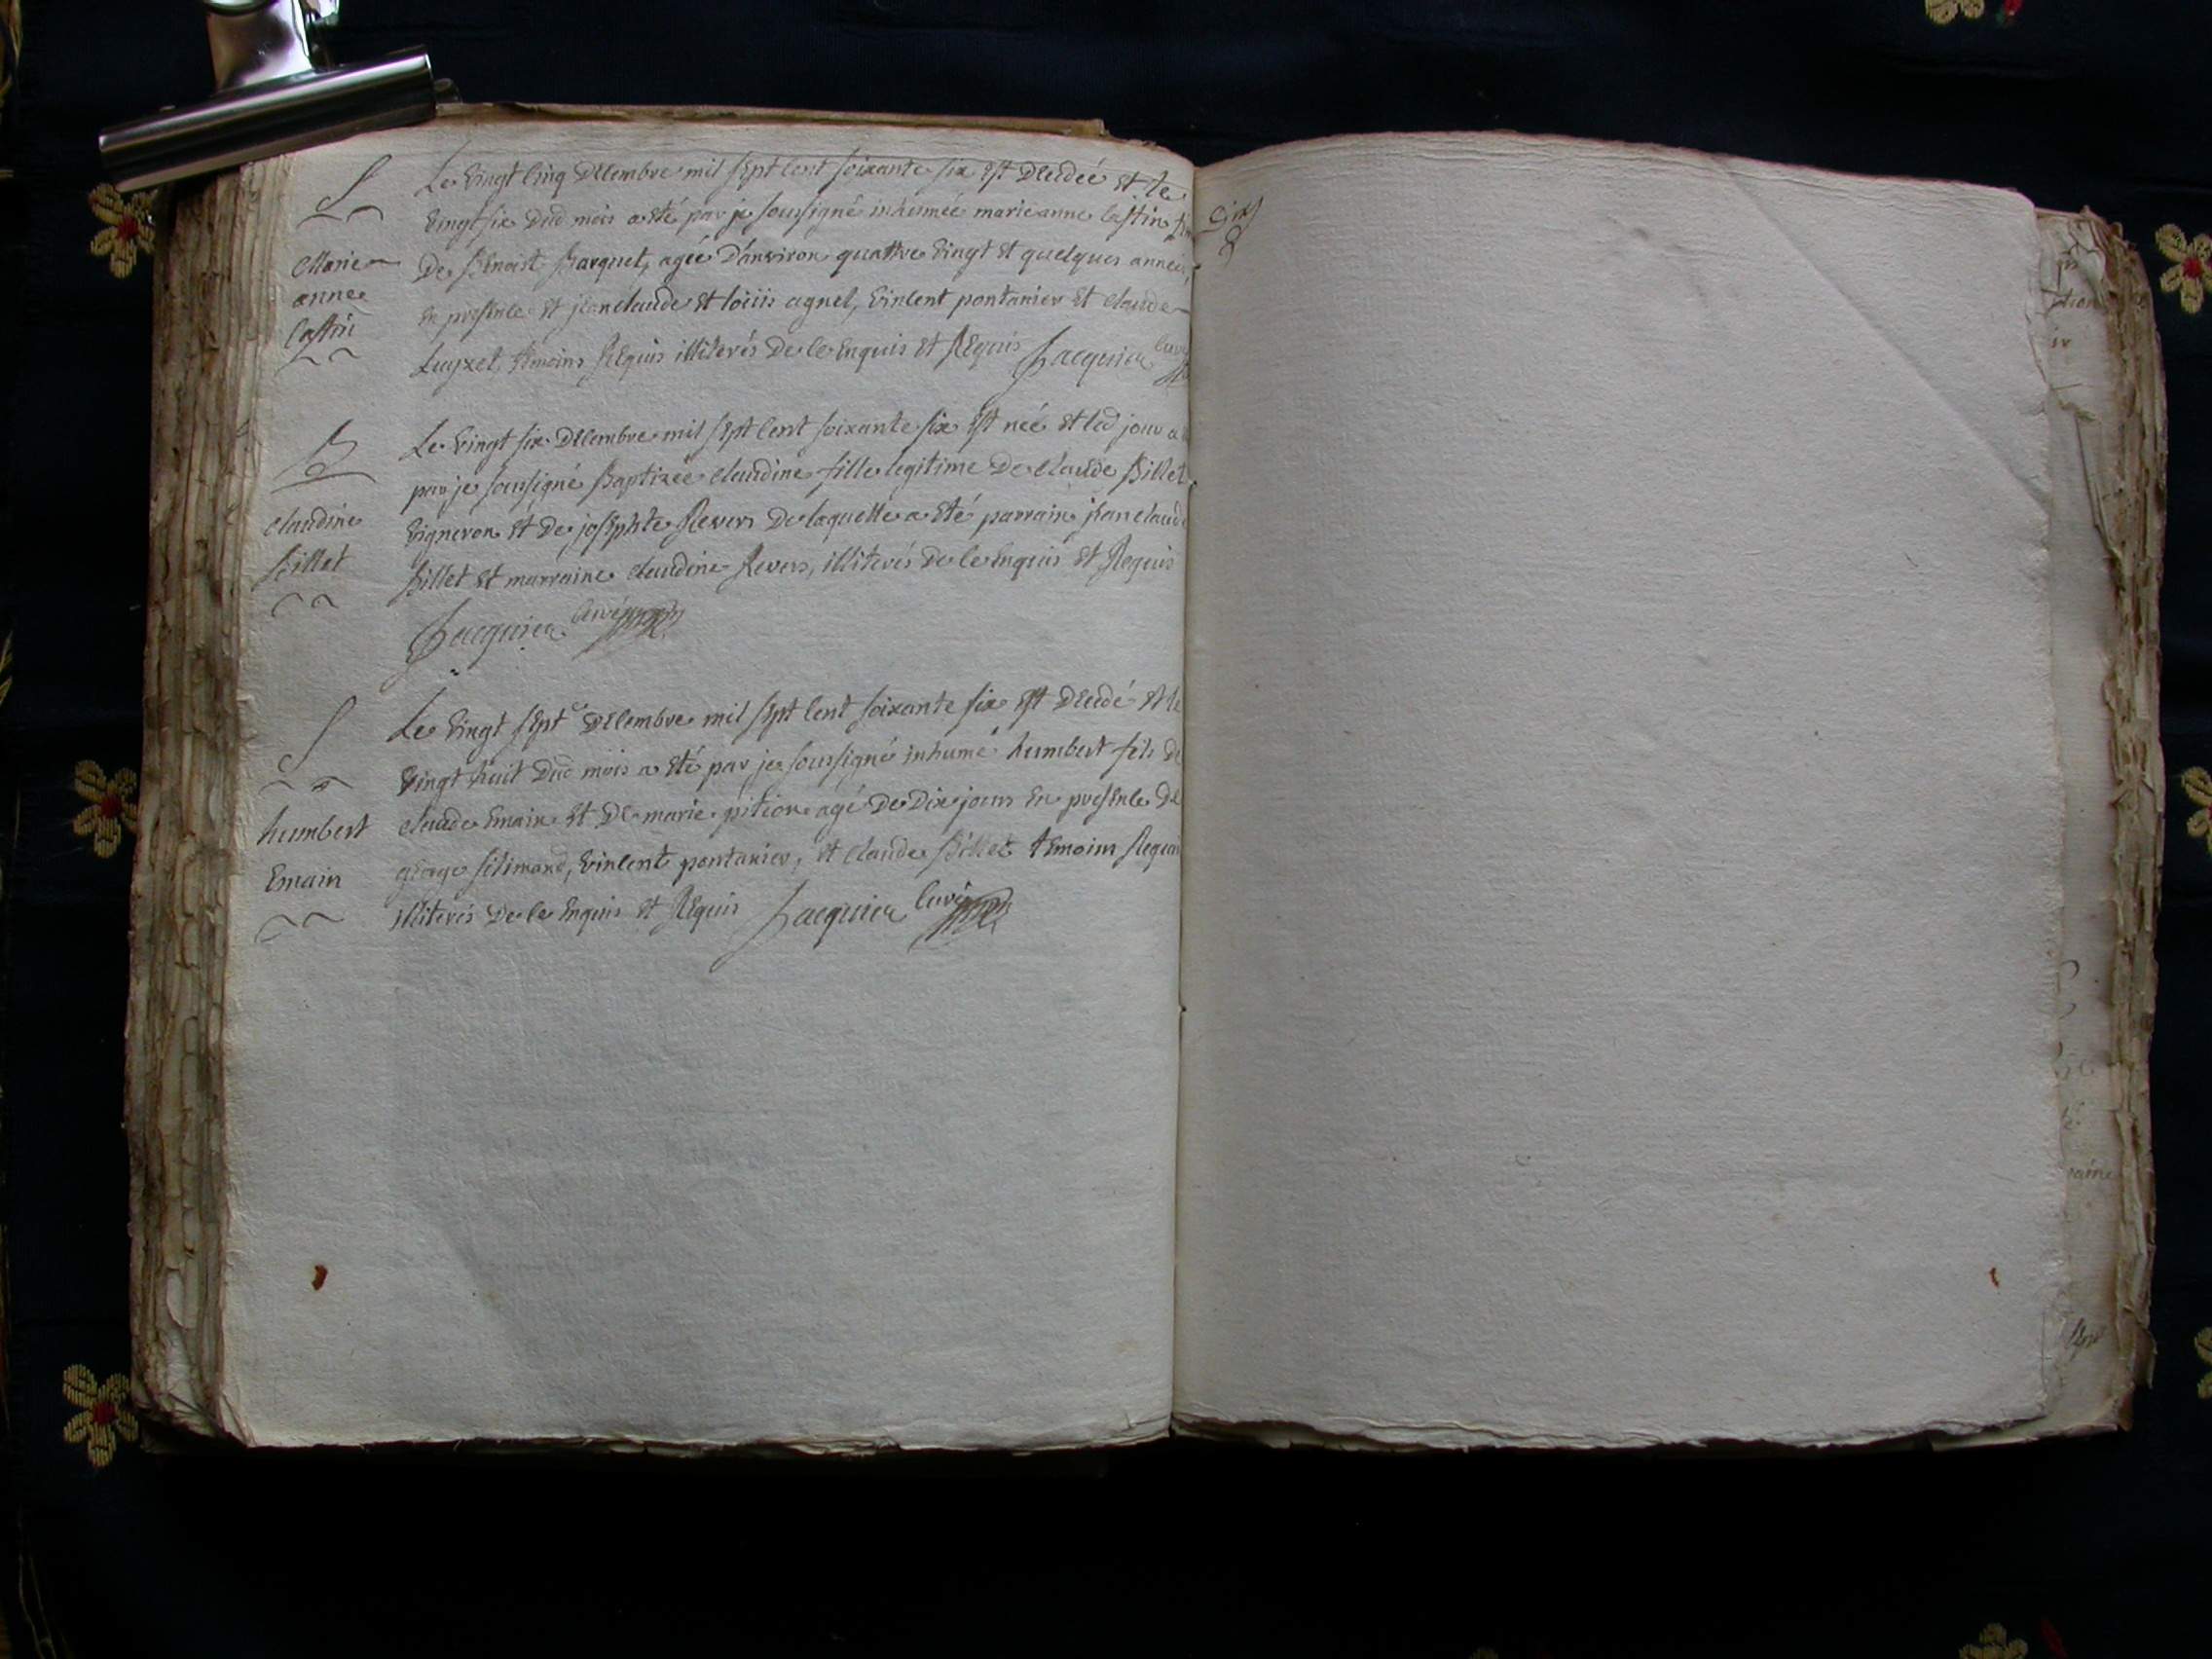 S
Marie
anne
Castin
Le vingt cinq Decembre mil sept cent soixante six est Decedée et le
vingt six dud mois a eté par je soussigné inhumée marie anne castin
De Benoist Barquet, agée D'anviron quattre vingt et quelques années,
En presence et jean claude et loüis agnel, vincent pontanier et claude
temoins Requis illiterés De ce Enquis et Requis Jacquier curé
B
claudine
Billet
Le vingt six Decembre mil sept cent soixante six est née et led jour a
par je soussigné Baptizée claudine fille legitime De claude Billet
vigneron et De josephte Revers De laquelle a eté parrain jean claude
Billet et marraine claudine Revers, illiterés De ce Enquis et Requis
Jacquier curé
S
humbert
Emain
Le vingt sept Decembre mil sept cent soixante six est Decedé et le
vingt huit Dud mois a eté par je soussigné inhumé humbert fils de
claude Emain et De marie pition agé De Dix jours En presence De
george silimand, vincent pontanier, et claude Billet temoins Requis
illiterés De ce Enquis et Requis Jacquier curé